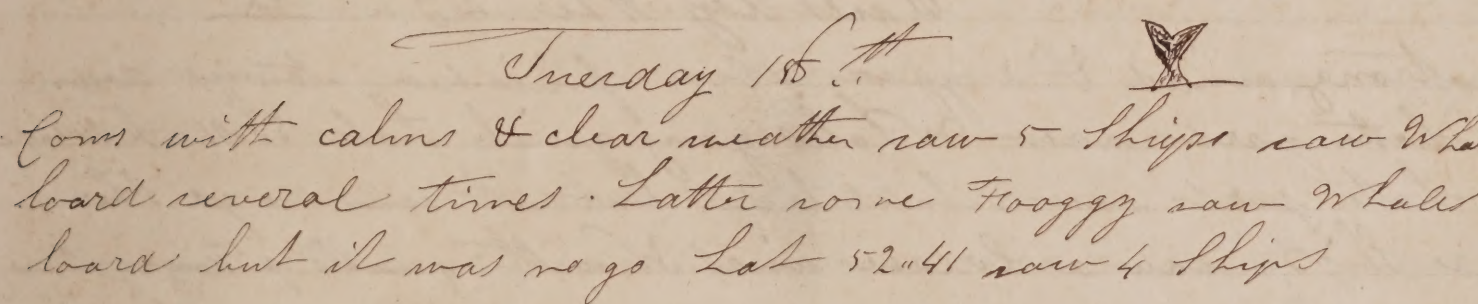 Tuesday 18th
Coms with calms & clear weather saw 5 Ships saw Wha
loard several times. Latter some Fooggy saw Whales
loard but it was no go Lat 52"41 saw 4 Ships